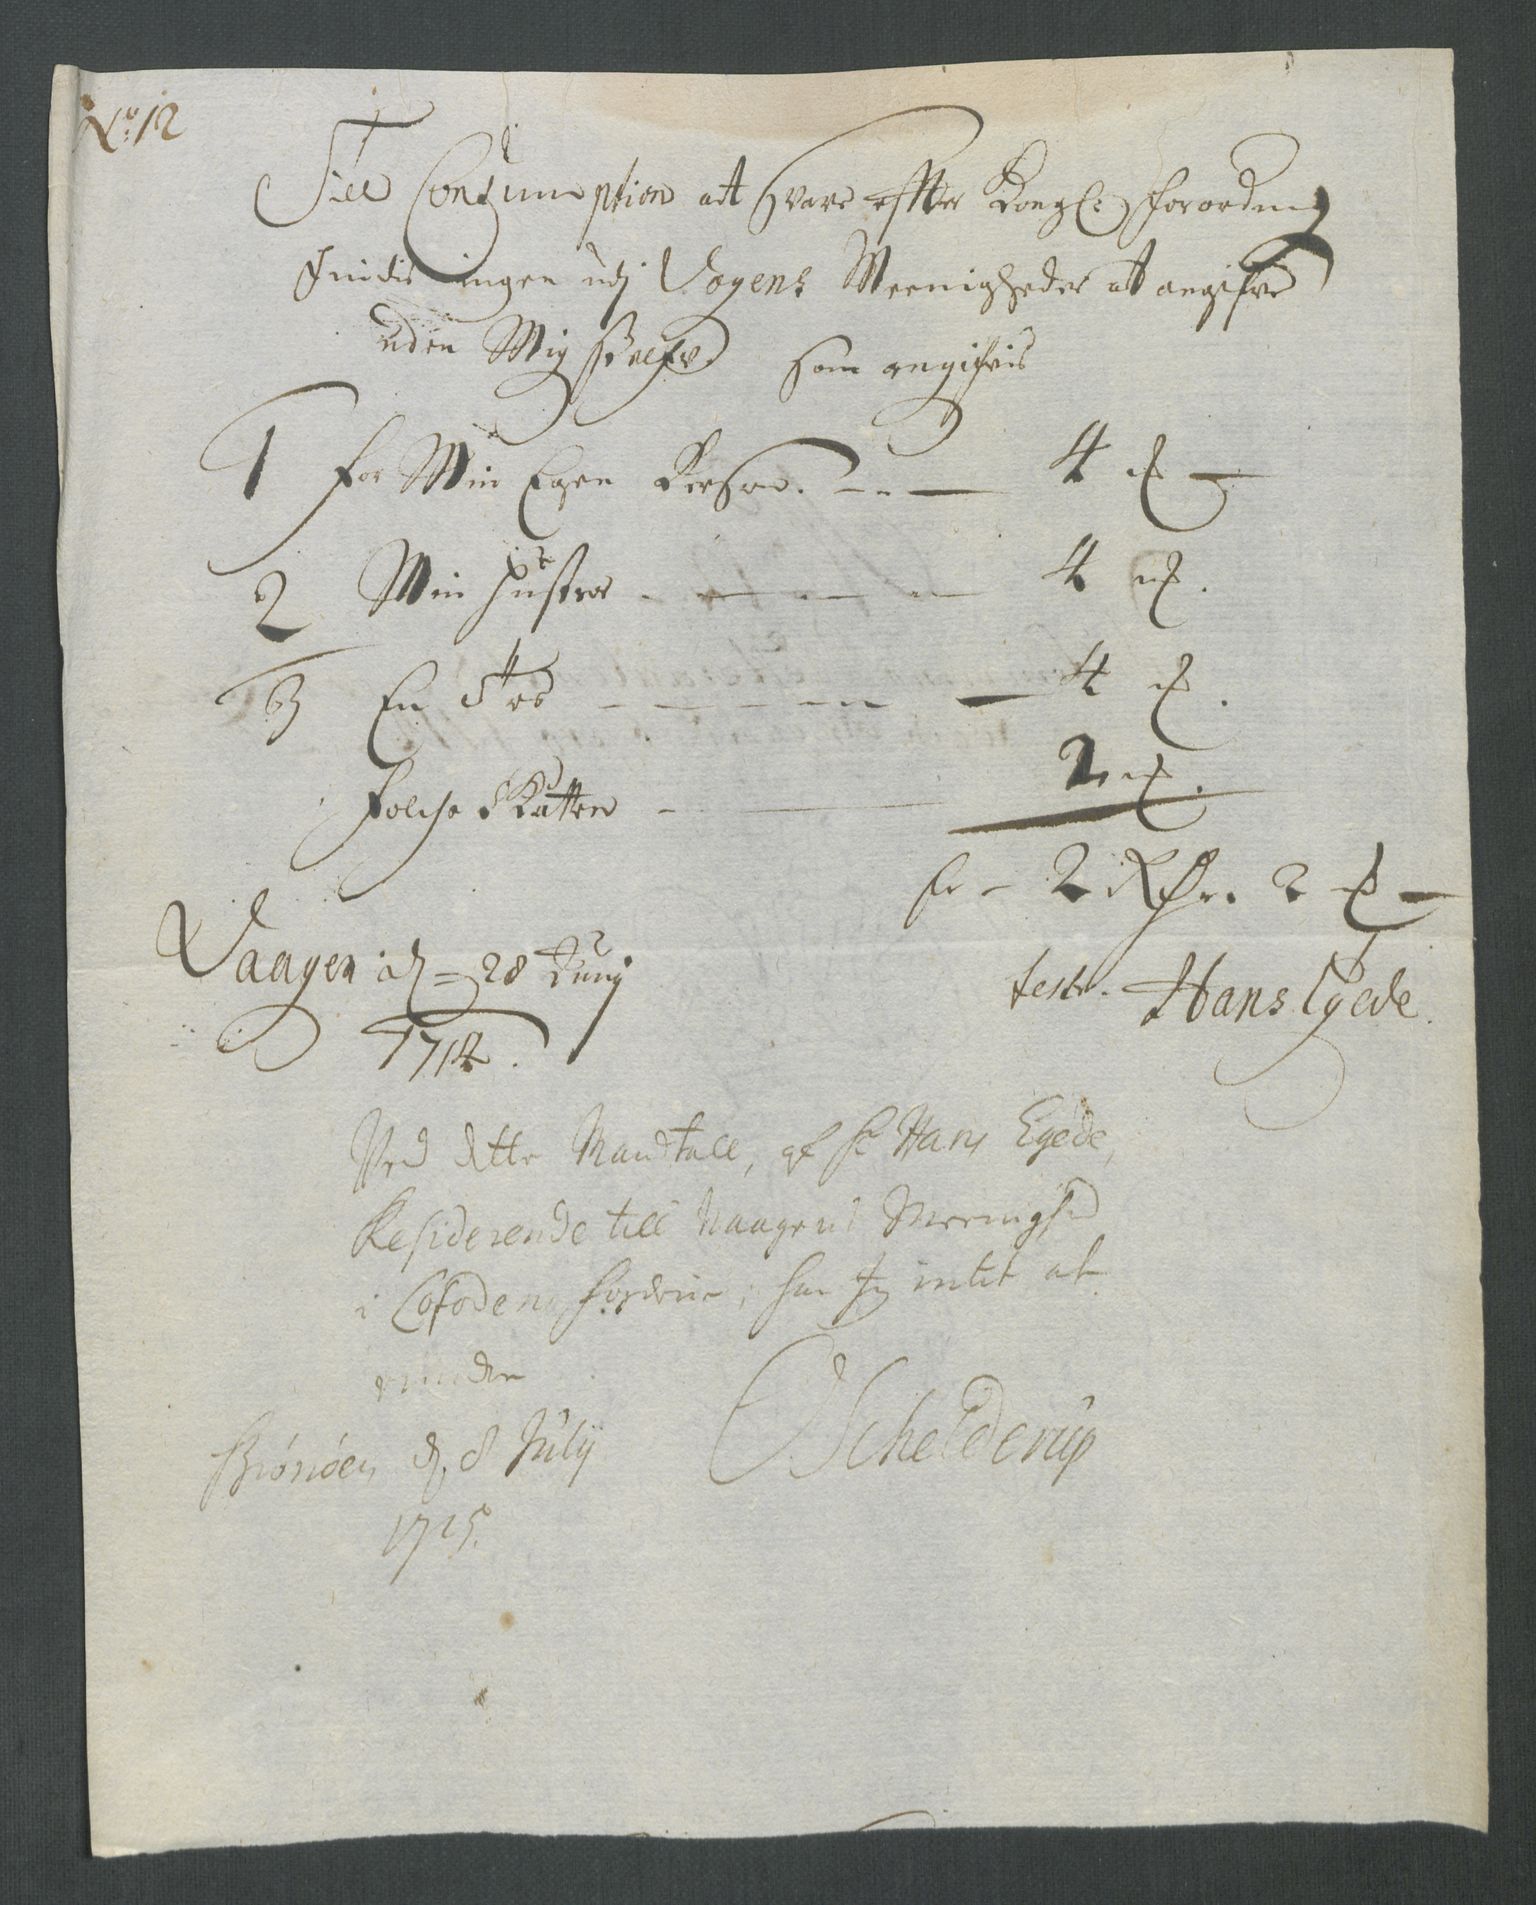 No 12
Till Consumption att svare effter Kongl: Forordning
findis ingen udj Vogens Meenigheder att angifve
uden Mig Sielfv som angifvis
1 for Min Egen Person. 4 mk
2 Min Hustroe 4 mk.
3 En 4 mk.
Folche Skatten 2 mk.
er 2 Rdr. 2 mk
Vaagen d. 28 Junij test. Hans Egede.
1714.
Ved dette Mandtall, af Hr Hans Egede,
Residerende till Waagens Meenighed
i Lofodens Fogderie, har Jeg intet at
erindre
Brönöen d. 8 Julij Schelderup
1715.